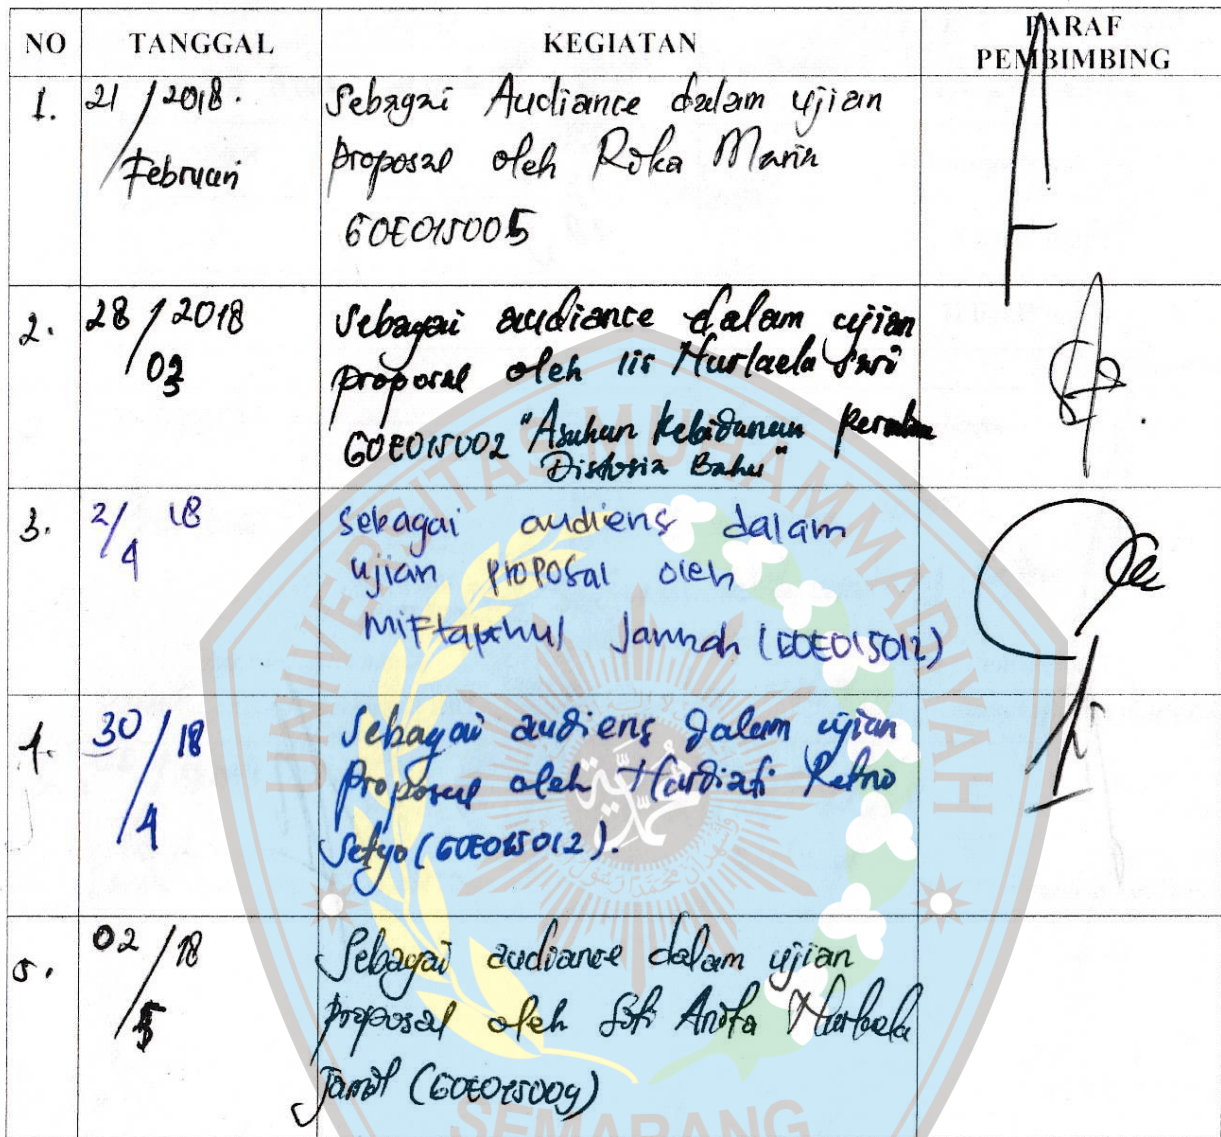 NO TANGGAL KEGIATAN PARAF PEMBIMBING
1. 21 / 2018. Februari
Sebagai Audiance dalam ujian
proposal oleh Rika Maria
60E015005
2. 28 / 2018 03
Sebagai audiance dalam ujian
proposal oleh Iis Nurlaela Sari
60E015002 "Asuhan Kebidanan
Distosia Bahu"
3. 2/4 18
sebagai audiens dalam
ujian proposal oleh
Miftaphul Jannah (60E015012)
4. 30/4 18
Sebagai audiens dalam ujian
proposal oleh Hardiati Retno
Setyo (60E015012).
5. 02/5 18
Sebagai audiance dalam ujian
proposal oleh Siti Anita Nurlaela
Jamil (60E015009)
UNIVERSITAS MUHAMMADIYAH
SEMARANG